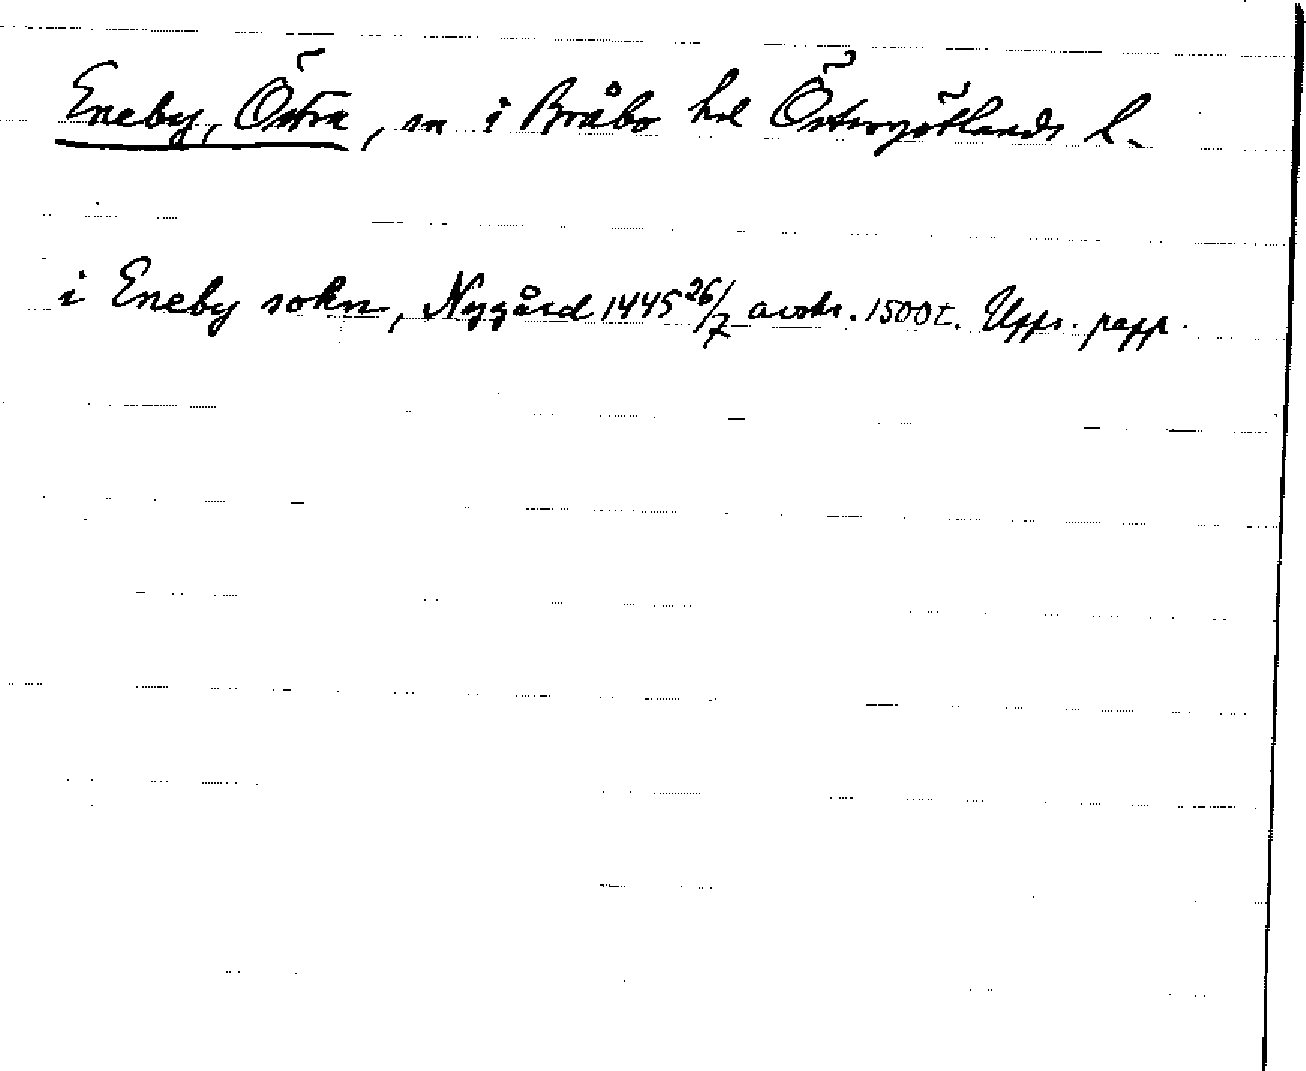 Eneby, Östra, sn i Bråbo hd Östergötlands l.
i Eneby sokn, Nygård 1445 26/7 avskr. 1500t. Upps. papp.